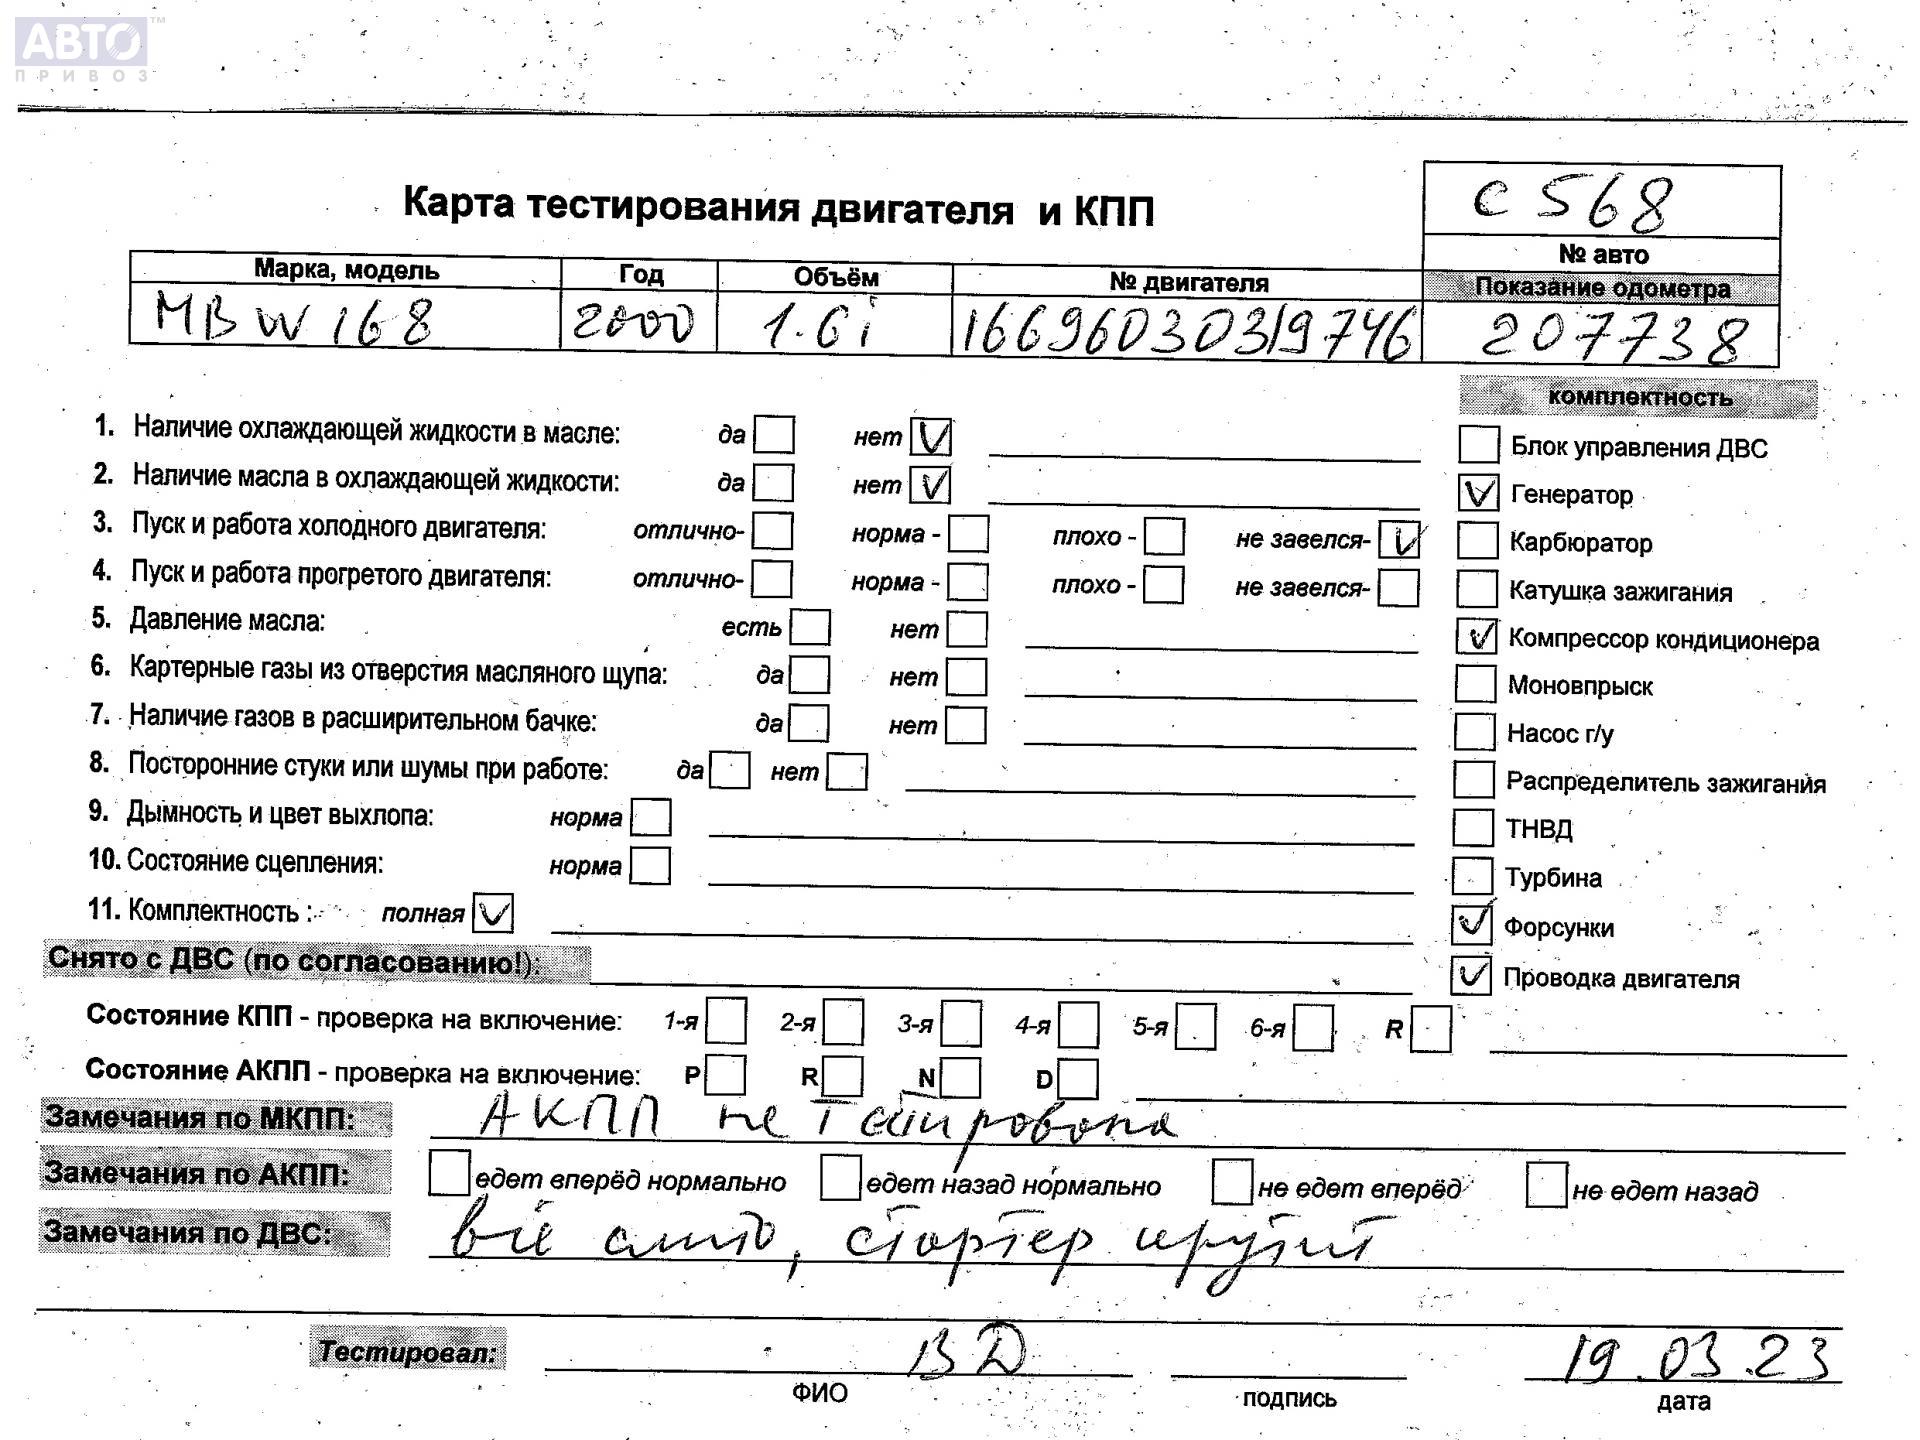 АВТО™
ПРИВОЗ
с 568
Карта тестирования двигателя и КПП
№ авто
Марка, модель Год Объём № двигателя Показание одометра
MB W168 2000 1.6i 16696030319746 207738
комплектность
1. Наличие охлаждающей жидкости в масле: да нет V
Блок управления ДВС
2. Наличие масла в охлаждающей жидкости: да нет V
V Генератор
3. Пуск и работа холодного двигателя: отлично- норма - плохо - не завелся- V
Карбюратор
4. Пуск и работа прогретого двигателя: отлично- норма - плохо - не завелся-
Катушка зажигания
5. Давление масла: есть нет
V Компрессор кондиционера
6. Картерные газы из отверстия масляного щупа: да нет
Моновпрыск
7. Наличие газов в расширительном бачке: да нет
Насос г/у
8. Посторонние стуки или шумы при работе: да нет
Распределитель зажигания
9. Дымность и цвет выхлопа: норма
ТНВД
10. Состояние сцепления: норма
Турбина
11. Комплектность : полная V
V Форсунки
Снято с ДВС (по согласованию!):
V Проводка двигателя
Состояние КПП - проверка на включение: 1-я 2-я 3-я 4-я 5-я 6-я R
Состояние АКПП - проверка на включение: P R N D
Замечания по МКПП: АКПП не тестирована
Замечания по АКПП: едет вперёд нормально едет назад нормально не едет вперёд не едет назад
Замечания по ДВС: всё снято, стартер крутит
Тестировал: ВД 19.03.23
ФИО подпись дата